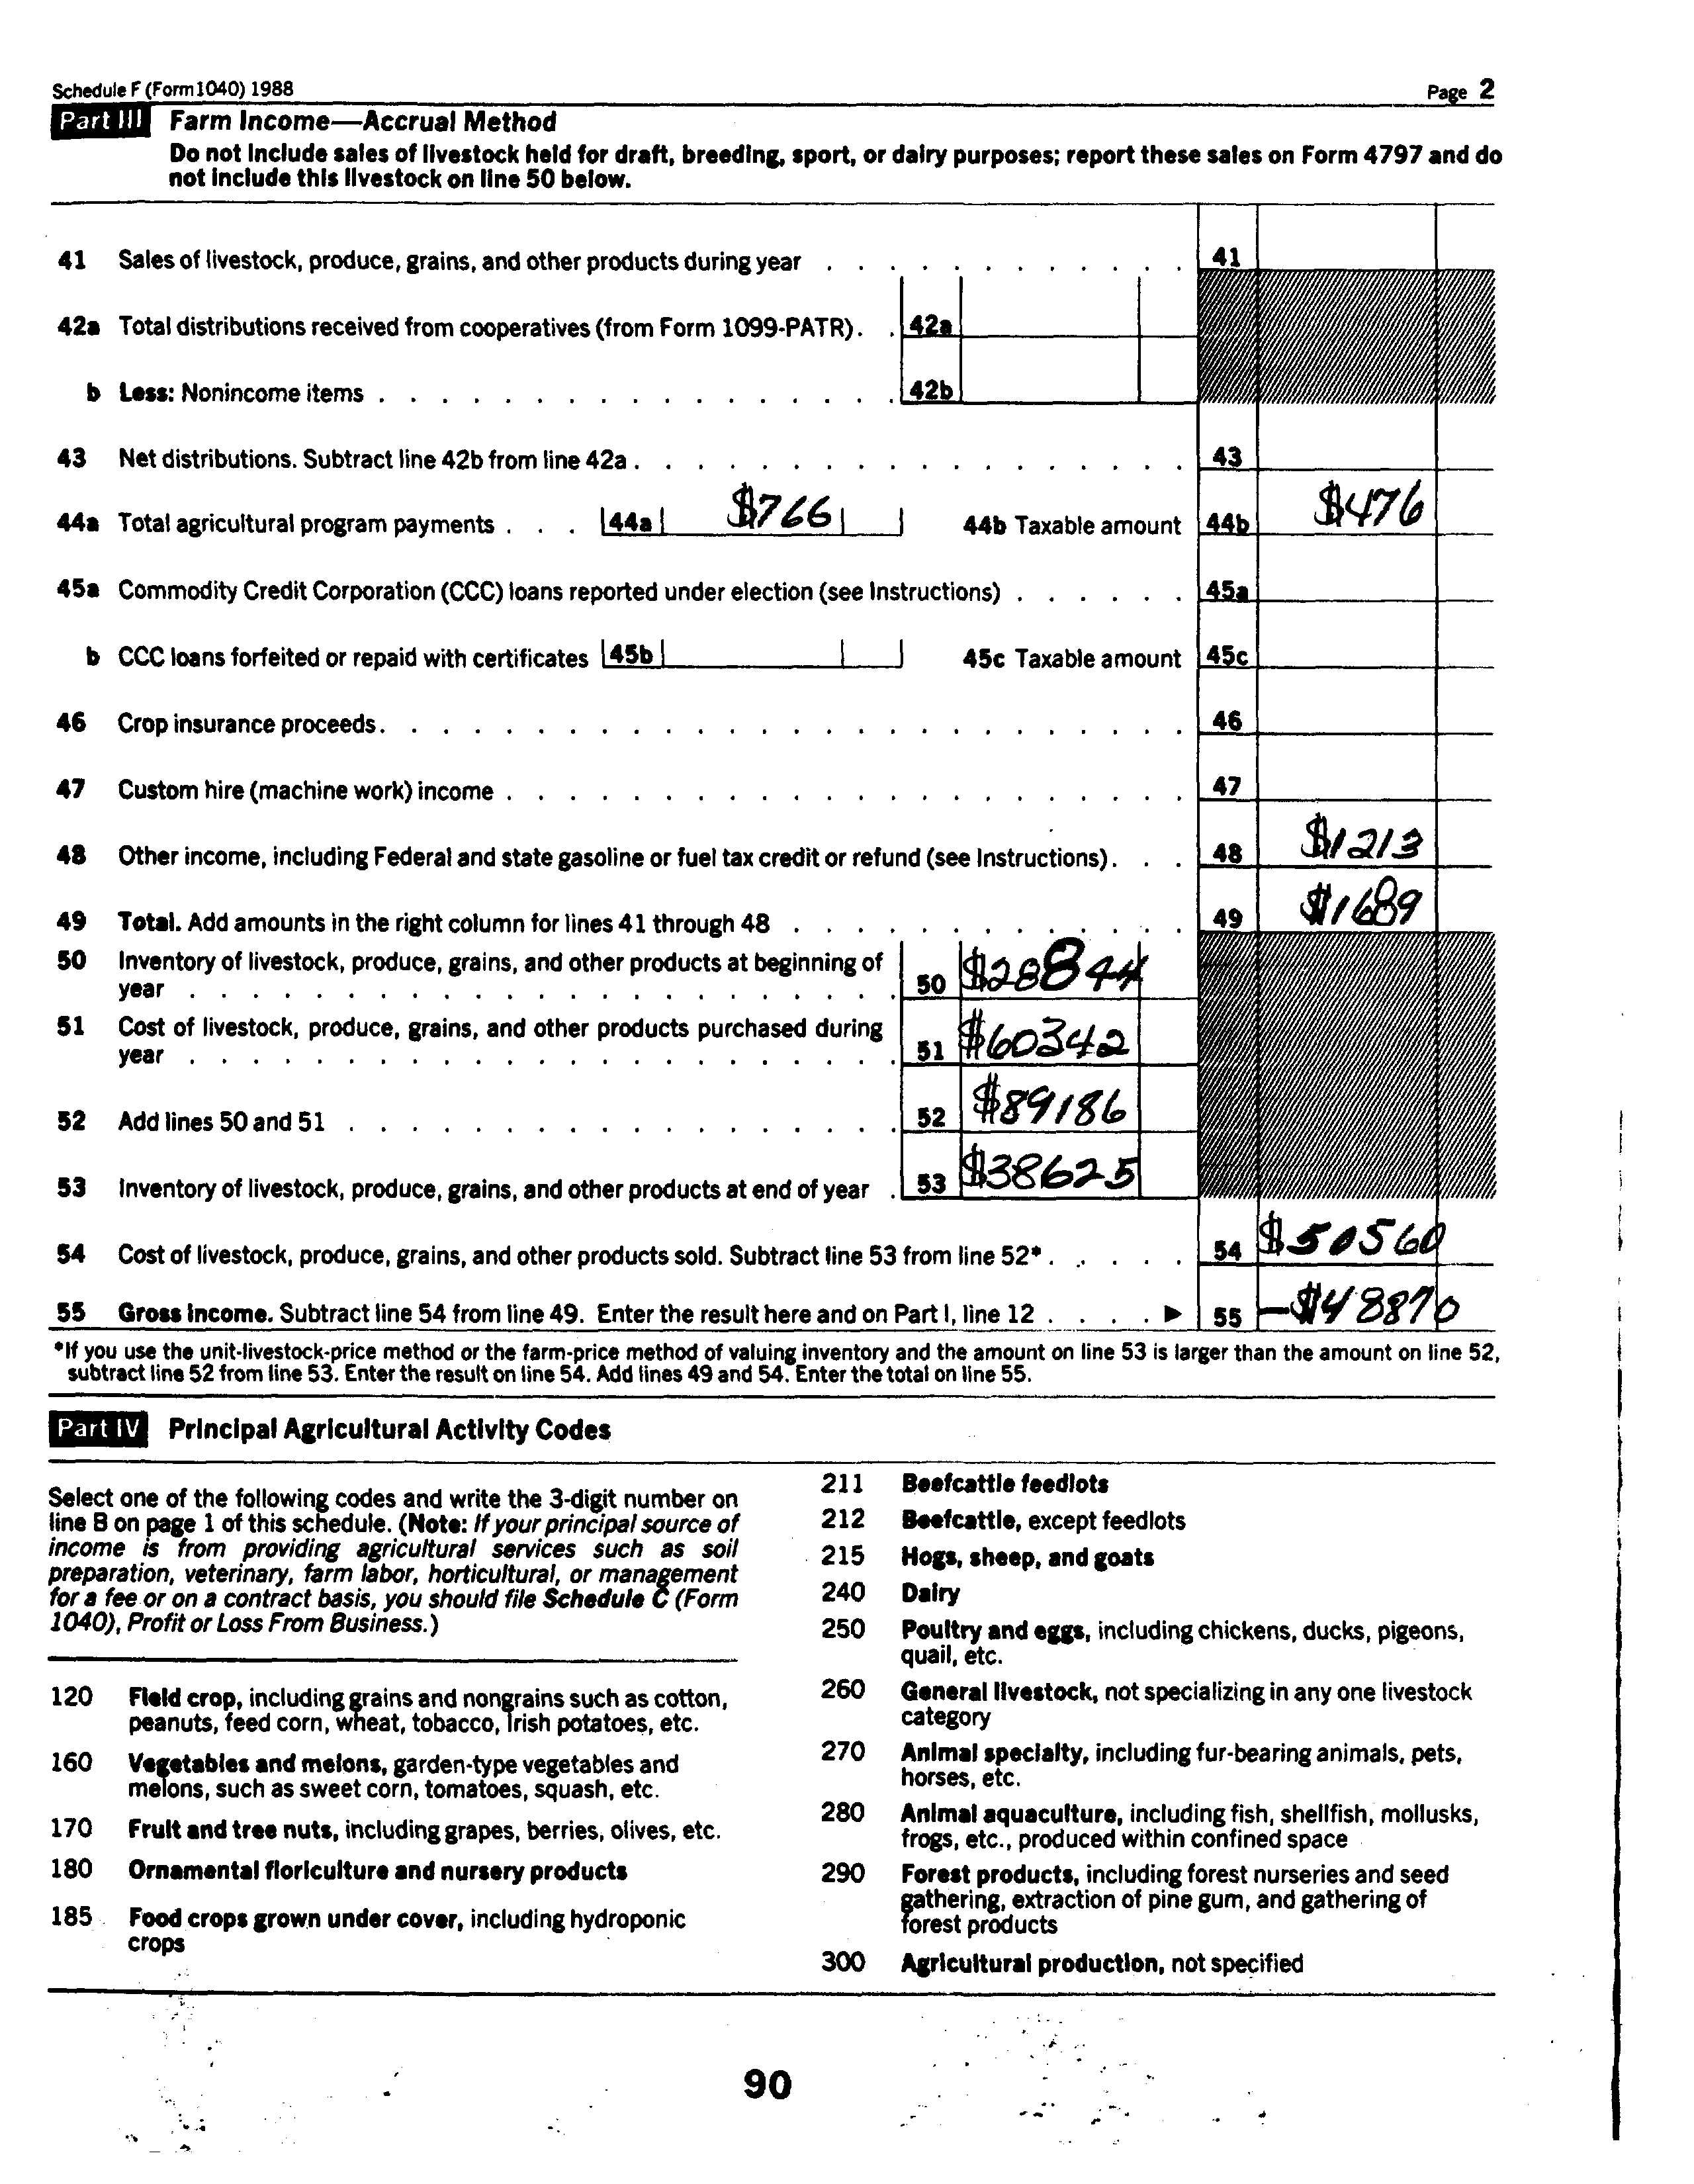 Schedule F (Form 1040) 1988 Page 2
Part III Farm Income—Accrual Method
Do not include sales of livestock held for draft, breeding, sport, or dairy purposes; report these sales on Form 4797 and do
not include this livestock on line 50 below.
41 Sales of livestock, produce, grains, and other products during year . . . . . . . . . . . . 41
42a Total distributions received from cooperatives (from Form 1099-PATR) . . 42a
b Less: Nonincome items . . . . . . . . . . . . . . . . . 42b
43 Net distributions. Subtract line 42b from line 42a . . . . . . . . . . . . . . . . . . 43
44a Total agricultural program payments . . . 44a $766 44b Taxable amount 44b $476
45a Commodity Credit Corporation (CCC) loans reported under election (see Instructions) . . . . . . 45a
b CCC loans forfeited or repaid with certificates 45b 45c Taxable amount 45c
46 Crop insurance proceeds . . . . . . . . . . . . . . . . . . . . . . . . . . 46
47 Custom hire (machine work) income . . . . . . . . . . . . . . . . . . . . . . 47
48 Other income, including Federal and state gasoline or fuel tax credit or refund (see Instructions) . . . 48 $1213
49 Total. Add amounts in the right column for lines 41 through 48 . . . . . . . . . . . . . 49 $1689
50 Inventory of livestock, produce, grains, and other products at beginning of
year . . . . . . . . . . . . . . . . . . . . . . . 50 $28844
51 Cost of livestock, produce, grains, and other products purchased during
year . . . . . . . . . . . . . . . . . . . . . . . 51 $60342
52 Add lines 50 and 51 . . . . . . . . . . . . . . . . . . 52 $89186
53 Inventory of livestock, produce, grains, and other products at end of year . 53 $38625
54 Cost of livestock, produce, grains, and other products sold. Subtract line 53 from line 52* . . . . . 54 $50560
55 Gross income. Subtract line 54 from line 49. Enter the result here and on Part I, line 12 . . . . ▶ 55 -$48870
*If you use the unit-livestock-price method or the farm-price method of valuing inventory and the amount on line 53 is larger than the amount on line 52,
subtract line 52 from line 53. Enter the result on line 54. Add lines 49 and 54. Enter the total on line 55.
Part IV Principal Agricultural Activity Codes
Select one of the following codes and write the 3-digit number on
line B on page 1 of this schedule. (Note: If your principal source of
income is from providing agricultural services such as soil
preparation, veterinary, farm labor, horticultural, or management
for a fee or on a contract basis, you should file Schedule C (Form
1040), Profit or Loss From Business.)
120 Field crop, including grains and nongrains such as cotton,
peanuts, feed corn, wheat, tobacco, Irish potatoes, etc.
160 Vegetables and melons, garden-type vegetables and
melons, such as sweet corn, tomatoes, squash, etc.
170 Fruit and tree nuts, including grapes, berries, olives, etc.
180 Ornamental floriculture and nursery products
185 Food crops grown under cover, including hydroponic
crops
211 Beefcattle feedlots
212 Beefcattle, except feedlots
215 Hogs, sheep, and goats
240 Dairy
250 Poultry and eggs, including chickens, ducks, pigeons,
quail, etc.
260 General livestock, not specializing in any one livestock
category
270 Animal specialty, including fur-bearing animals, pets,
horses, etc.
280 Animal aquaculture, including fish, shellfish, mollusks,
frogs, etc., produced within confined space
290 Forest products, including forest nurseries and seed
gathering, extraction of pine gum, and gathering of
forest products
300 Agricultural production, not specified
90